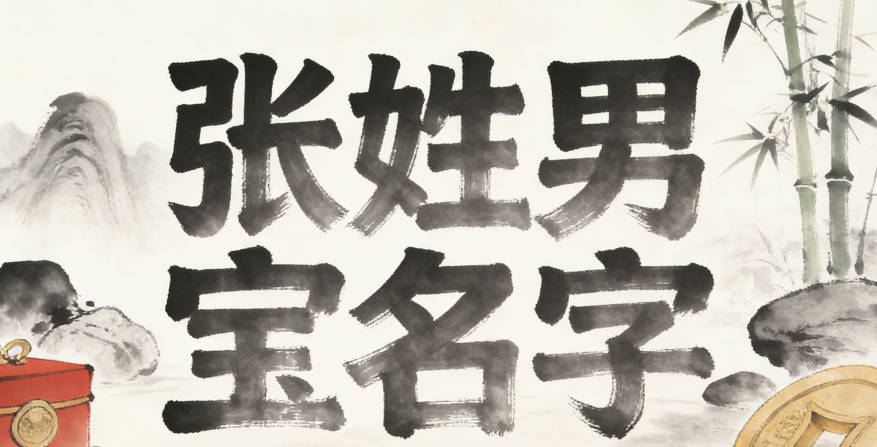 张姓男
宝名字